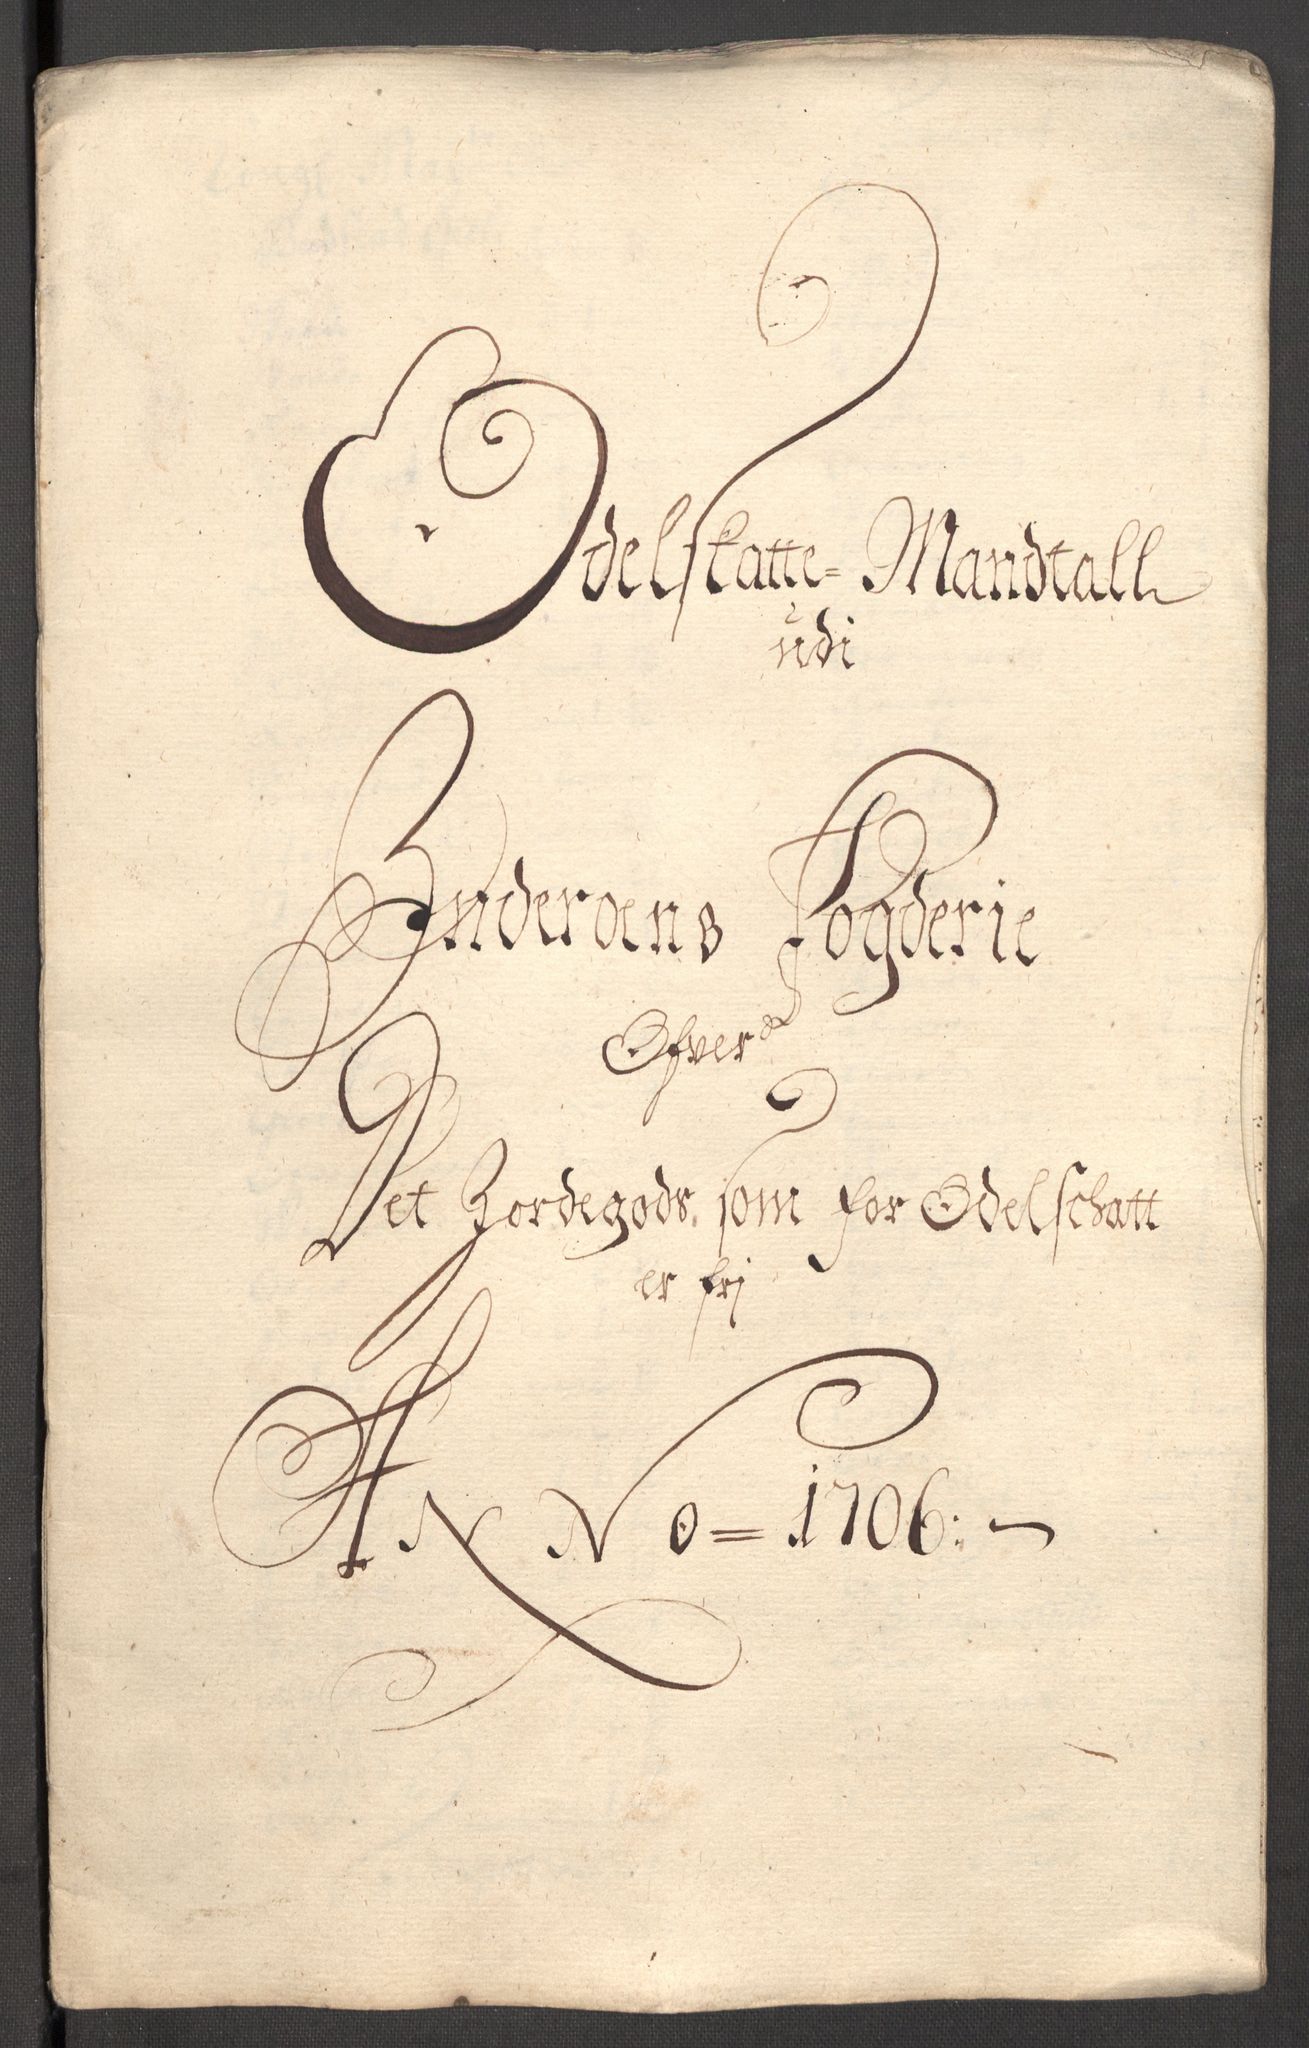 Odelskatte= Mandtall
udi
Inderøens Fogderie
Ofver
Det Jordegods som for Odelschatt
er frj
ANNO= 1706: